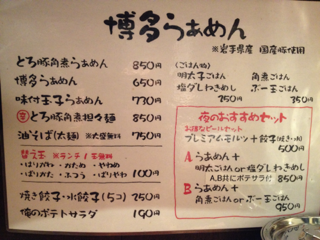 博多らぁめん
※岩手県 国産豚使用
とろ豚角煮らぁめん 850円
博多らぁめん 650円
味付玉子らぁめん 730円
とろ豚角煮担々麺 850円
油そば(太麺) 750円
替え玉
ばりかた・ふつう・ばりやわ 100円
焼き餃子・水餃子(5コ) 250円
俺のポテトサラダ 190円
(ごはん物)
明太子ごはん 角煮ごはん
塩ダレわきめし ボー玉ごはん
250円 350円
夜のおすすめセット
プレミアムモルツ+餃子(焼き・水)
500円
Aらぁめん+
明太ごはんor塩ダレわきめし
A,B共にポテサラ付 850円
Bらぁめん+
角煮ごはんorボー玉ごはん
950円